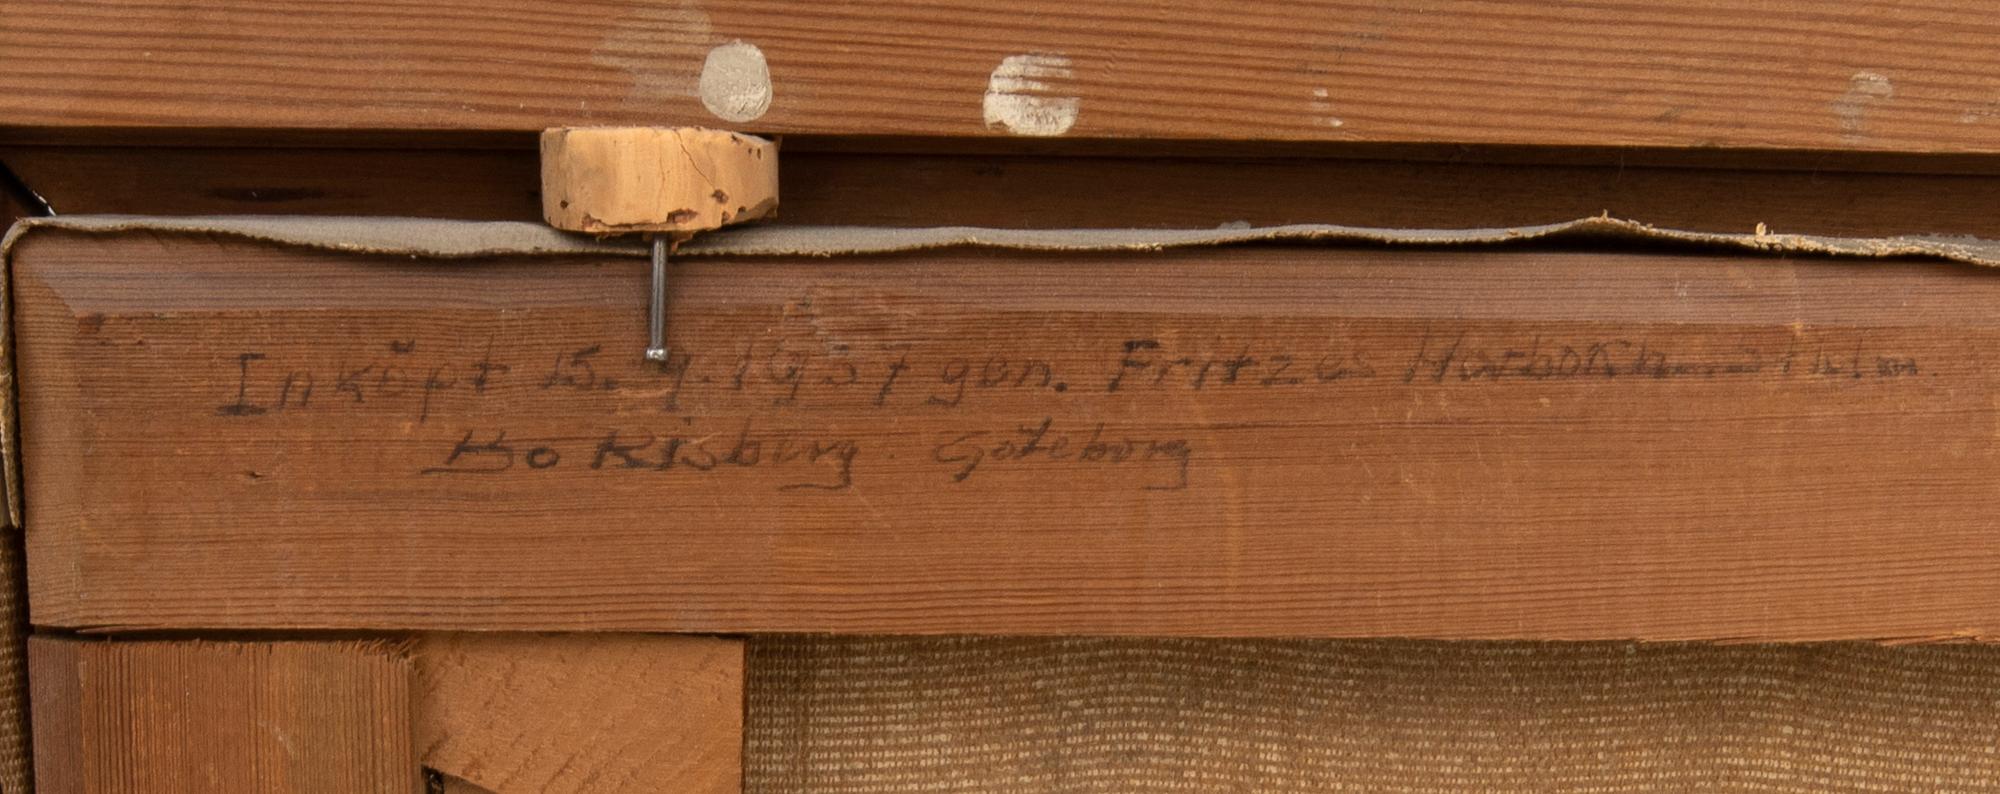 Inköpt 15. 9. 1937 gen. Fritzes Hovbokh. Sthlm.
Bo Risberg. Göteborg